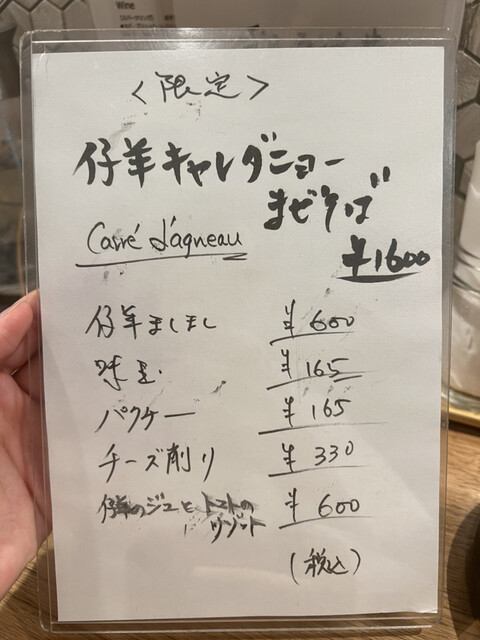 Wine
＜限定＞
仔羊キャレダニョー
まぜそば
Carré d'agneau
¥1600
仔羊ましまし ¥600
味玉 ¥165
パクチー ¥165
チーズ削り ¥330
仔羊のジュとトマトの
リゾット ¥600
(税込)